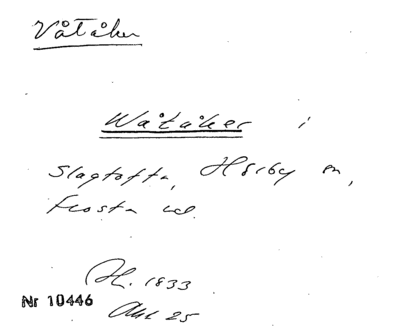 Våtåker
Wåtåker i
Slagtofta, Hörby sn,
Frosta hd.
Ah. 1833
Akt 25
Nr 10446